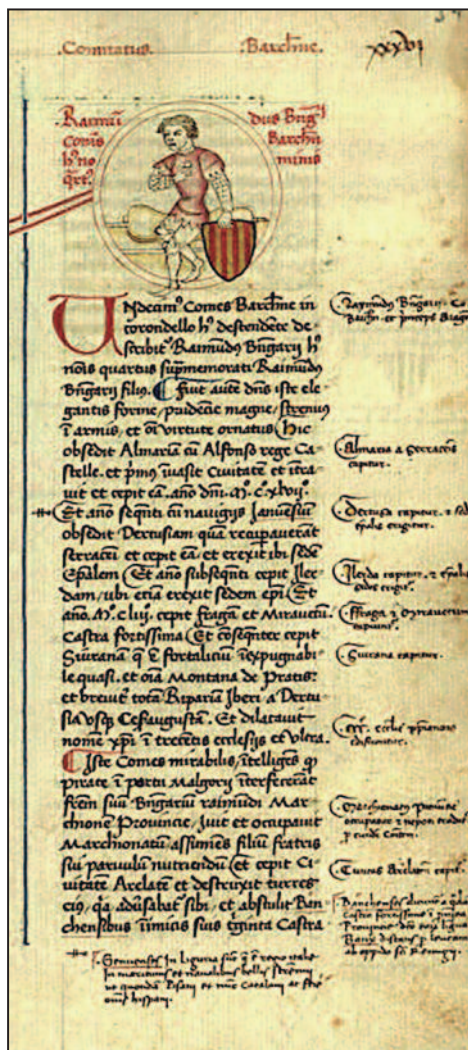 Comitatus. Barchñe. xxxvi
Raimũ dus Bñgꝰ
Comes Barchñ
hꝰ no minis
qrtꝰ
Undecimꝰ Comes Barchñe in
corondello hꝰ descendere de-
scribitꝰ Raimũdꝰ Bñgarii hꝰ
nõis quartus supmemorati Raimũdꝰ
Bñgarii filiꝰ. Fuit autẽ dñs iste ele
gantis forme, prudẽcie magne, strenuꝰ
ĩ armis, et õi virtute ornatus Hic
obsedit Almariã cũ Alfonso rege Ca
stelle. et pmꝰ ĩuasit Civitatẽ et ĩtra
uit et cepit eã. año dñi. M. C. xlvij.
Et año seqñti cũ navigiis Januẽsiũ
obsedit Dertusiam quã recupauerãt
serraceni et cepit eã. et erexit ibi sedẽ
Epalem Et año subseqñti cepit Iler
dam, ubi etiã erexit sedem epi Et
año. M. C. liij. cepit fragã et Miravetũ
Castra fortissima Et cõseqñter cepit
Siuranã q ẽ fortaliciũ ĩexpugnabi
le quasi. et oĩa Montana de Pratis:
et breuitꝰ totã Ripariã Iberi a Dertu
sia vsqꝫ Cesaugustã. Et dilatauit
nomẽ xpi ĩ trecẽtis ecclesijs et vltra.
Iste Comes mirabilis, ĩtelligẽs qꝫ
pirate ĩ portu Malgorij ĩterfecerãt
frẽm suũ Bñgariũ raimũdi Mar
chionẽ Prouincie, Juit et occupauit
Marchionatũ assumẽs filiũ fratris
sui paruulũ nutriendũ et cepit Ci
vitatẽ Arelatẽ et destruxit turres
eiꝰ, qa aduersabat sibi, et abstulit Ban
chensibus ĩimicis suis triginta Castra
Raymũdꝰ Bñgarii Co
Barchñ. et prĩceps Arag
Almaria a serracẽis
capitur.
Dertusa capitur. et sed
epalis erigitur.
Ilerda capitur. et epalis
sedes erigit.
Ffraga et Miravetum
capiunt.
Siurana capitur.
ccc. ecclie
edificantur.
Marchionatꝰ Prouincie
occupatur et nepoti traditꝰ
Turres Arelatẽ
Banchenses dicunt a
Castro fortissimo ĩ
Prouincie
Genuenses in liguria
In maritimis et naualibus bellis strenui
ut quondã Pisani et nũc Catalani
hispani.